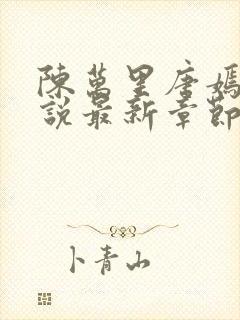 陳萬里唐嫣
說最新章節
卜青山